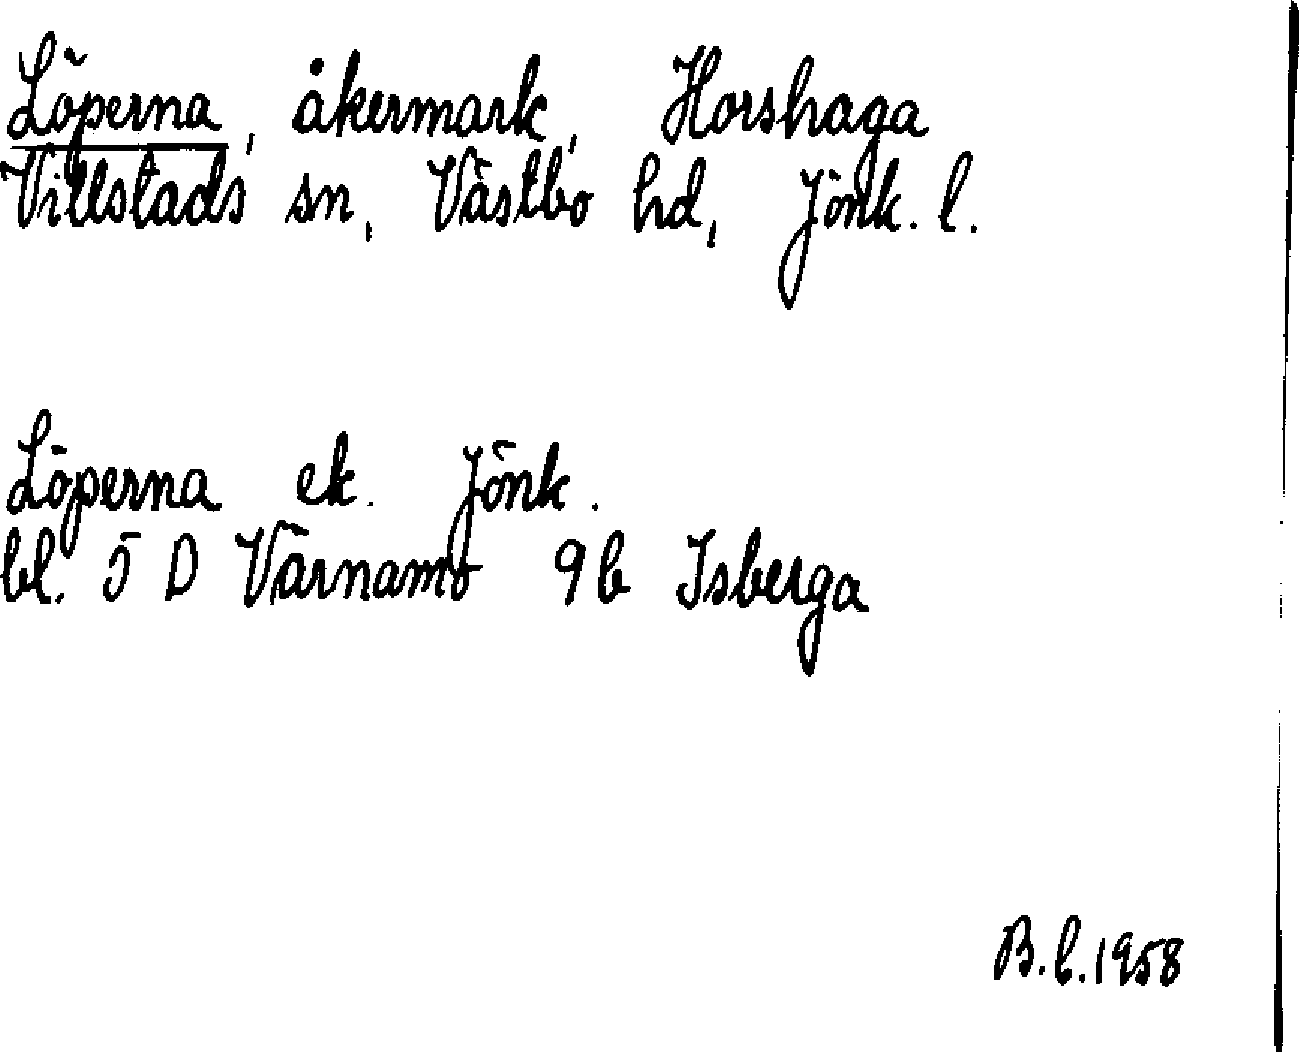 Löperna, åkermark, Horshaga
Villstads sn, Västbo hd, Jönk. l.
Löperna ek. Jönk.
bl. 5 D Värnamo 9b Isberga
B.l. 1958